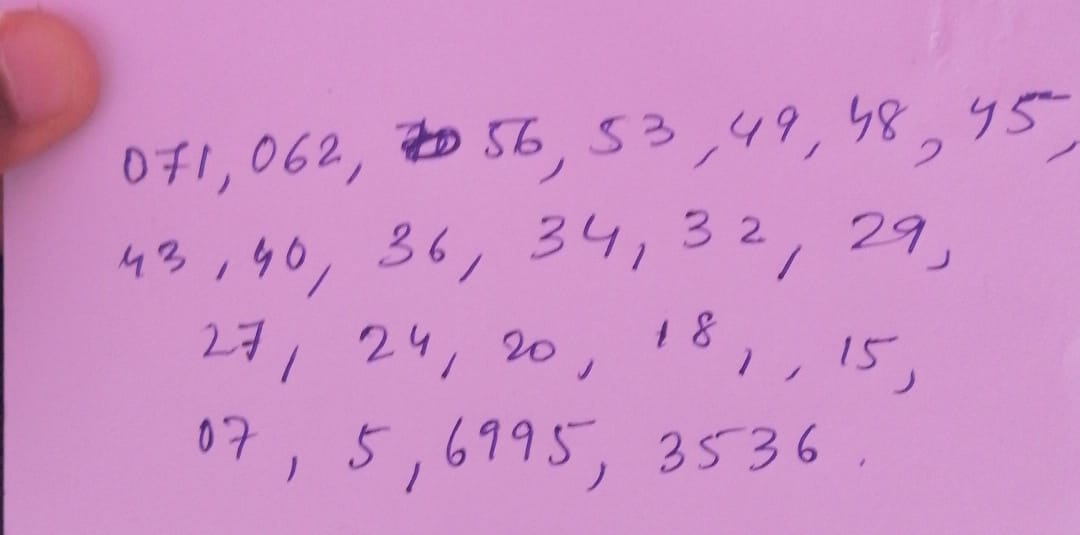 071, 062, 56, 53, 49, 48, 45,
43, 40, 36, 34, 32, 29,
27, 24, 20, 18, , 15,
07, 5, 6995, 3536.